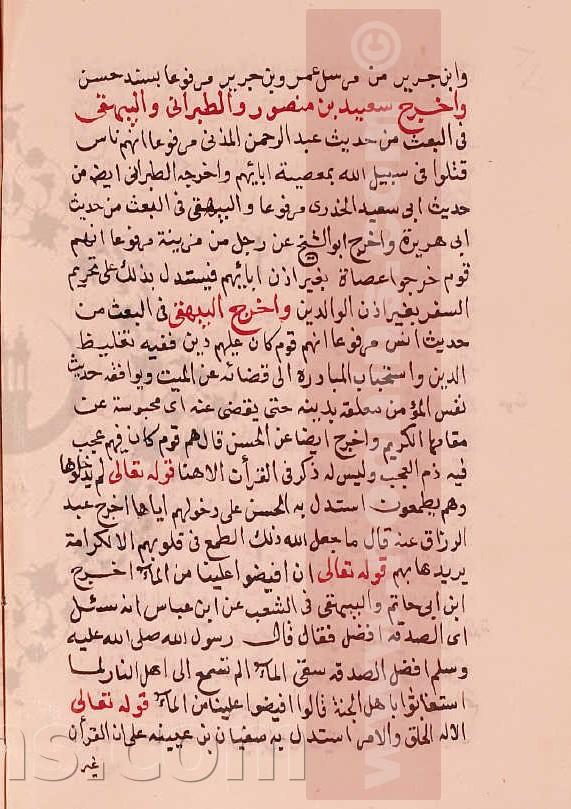 وابن جرير من مرسل عمرو بن جرير مرفوعا بسند حسن
واخرج سعيد بن منصور والطبراني والبيهقي
في البعث من حديث عبد الرحمن المدني مرفوعا انهم ناس
قتلوا في سبيل الله بمعصية ابائهم واخرجه الطبراني ايضا من
حديث ابى سعيد الخدرى مرفوعا والبيهقى فى البعث من حديث
ابى هريرة واخرج ابو الشيخ عن رجل من مزينة مرفوعا انهم
قوم خرجوا عصاة بغير اذن ابائهم فيستدل بذلك على تحريم
السفر بغير اذن الوالدين واخرج البيهقى فى البعث من
حديث انس مرفوعا انهم قوم كان عليهم دين ففيه تغليظ
الدين واستحباب المبادرة الى قضائه عن الميت ويوافقه حديث
نفس المؤمن معلقة بدينه حتى يقضى عنه اى محبوسة عن
مقامها الكريم واخرج ايضا عن الحسن قال هم قوم كان فيهم عجب
فيه ذم العجب وليس له ذكر فى القرآن الا هنا قوله تعالى لم يدخلوها
وهم يطمعون استدل به الحسن على دخولهم اياها اخرج عبد
الرزاق عنه قال ما جعل الله ذلك الطمع فى قلوبهم الا لكرامة
يريدها بهم قوله تعالى ان افيضوا علينا من الماء اخرج
ابن ابى حاتم والبيهقى فى الشعب عن ابن عباس انه سئل
اى الصدقة افضل فقال قال رسول الله صلى الله عليه
وسلم افضل الصدقة سقى الماء الم تسمع الى اهل النار لما
استغاثوا باهل الجنة قالوا افيضوا علينا من الماء قوله تعالى
الا له الخلق والامر استدل به سفيان بن عيينه على ان القرآن
غير